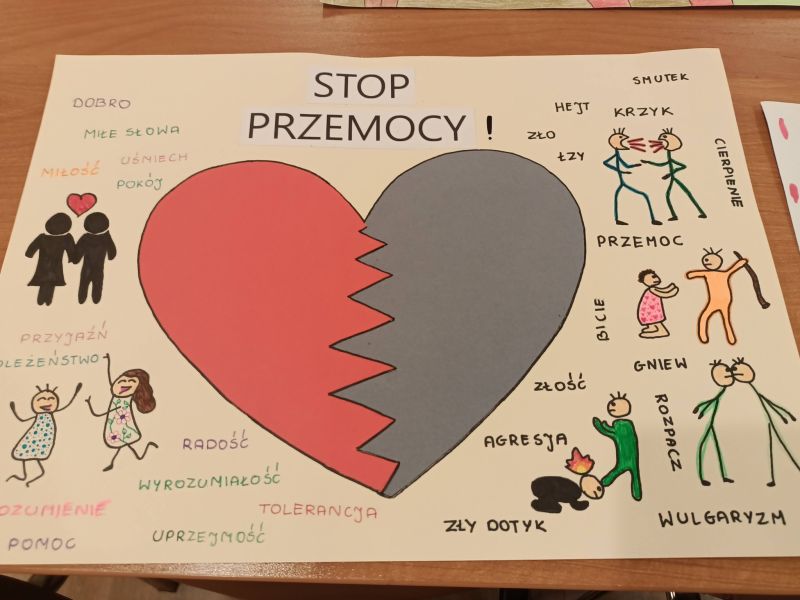 STOP
PRZEMOCY !
DOBRO
MIŁE SŁOWA
UŚMIECH
MIŁOŚĆ
POKÓJ
PRZYJAŹŃ
OLEŻEŃSTWO
RADOŚĆ
WYROZUMIAŁOŚĆ
TOLERANCJA
OZUMIENIE
UPRZEJMOŚĆ
POMOC
SMUTEK
HEJT
KRZYK
ZŁO
ŁZY
CIERPIENIE
PRZEMOC
BICIE
GNIEW
ZŁOŚĆ
ROZPACZ
AGRESJA
ZŁY DOTYK
WULGARYZM